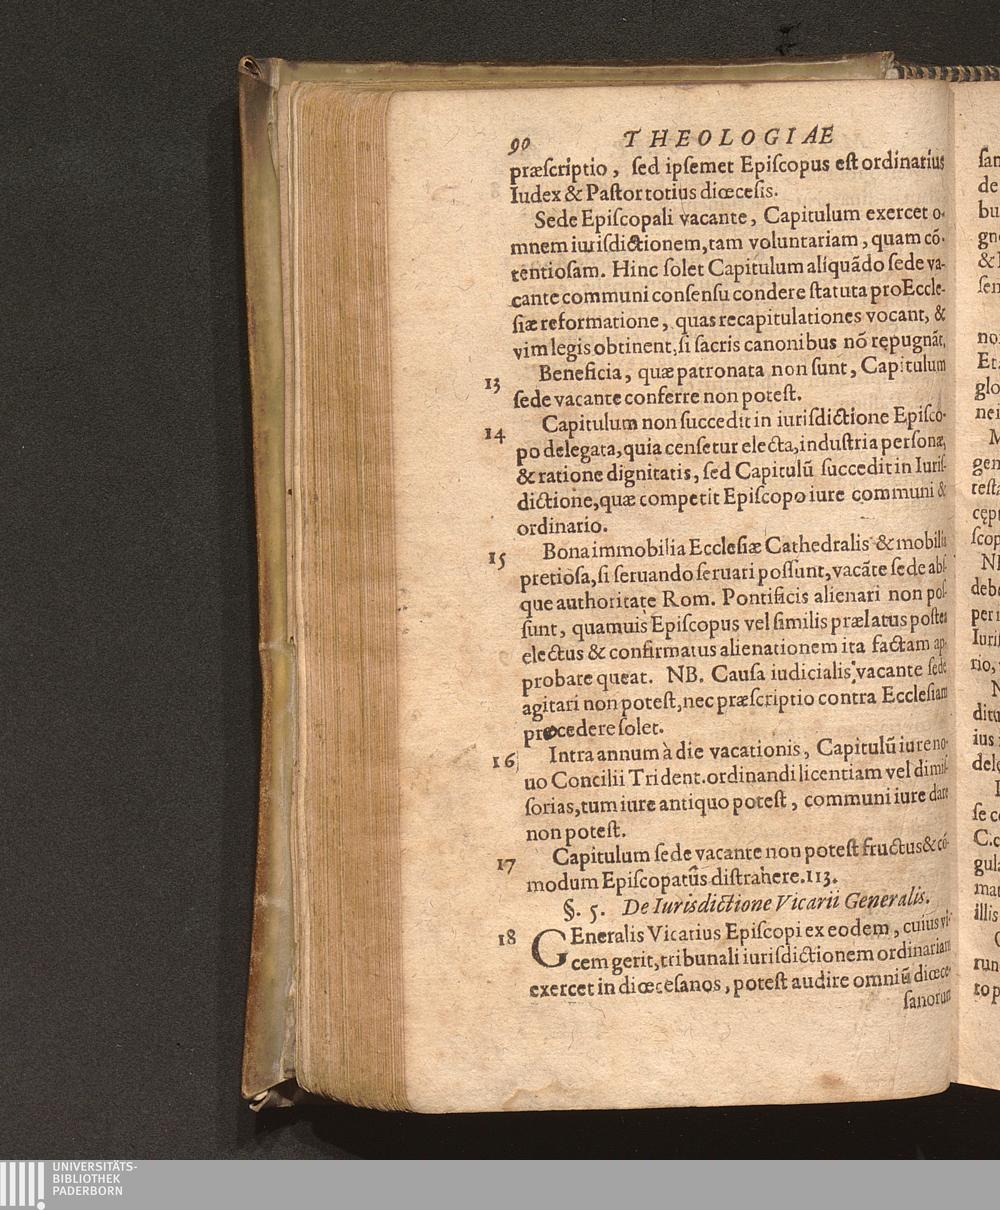 90 THEOLOGIAE
præſcriptio, ſed ipſemet Epiſcopus eſt ordinarius
Iudex & Paſtor totius diœceſis.
Sede Epiſcopali vacante, Capitulum exercet o-
mnem iuriſdictionem, tam voluntariam, quam cõ-
tentioſam. Hinc ſolet Capitulum aliquãdo ſede va-
cante communi conſenſu condere ſtatuta pro Eccle-
ſiæ reformatione, quas recapitulationes vocant, &
vim legis obtinent, ſi ſacris canonibus nõ repugnãt,
13 Beneficia, quæ patronata non ſunt, Capitulum
ſede vacante conferre non poteſt.
14 Capitulum non ſuccedit in iuriſdictione Epiſco-
po delegata, quia cenſetur electa, induſtria perſonæ,
& ratione dignitatis, ſed Capitulũ ſuccedit in Iuriſ-
dictione, quæ competit Epiſcopo iure communi &
ordinario.
15 Bona immobilia Eccleſiæ Cathedralis & mobilia
pretioſa, ſi ſeruando ſeruari poſſunt, vacãte ſede abſ-
que authoritate Rom. Pontificis alienari non poſ-
ſunt, quamuis Epiſcopus vel ſimilis prælatus poſtea
electus & confirmatus alienationem ita factam ap-
probare queat. NB. Cauſa iudicialis, vacante ſede
agitari non poteſt, nec præſcriptio contra Eccleſiam
procedere ſolet.
16 Intra annum à die vacationis, Capitulũ iure no-
uo Concilii Trident. ordinandi licentiam vel dimiſ-
ſorias, tum iure antiquo poteſt, communi iure dare
non poteſt.
17 Capitulum ſede vacante non poteſt fructus & cõ-
modum Epiſcopatûs diſtrahere. 113.
§. 5. De Iurisdictione Vicarii Generalis.
18 GEneralis Vicarius Epiſcopi ex eodem, cuius vi-
cem gerit, tribunali iuriſdictionem ordinariam
exercet in diœceſanos, poteſt audire omniũ diœce-
ſanorum
ſan
de
bu
gno
&
ſen
no
Et
glo
nei
M
gen
teſta
cępr
ſcop
N
debe
per
Iuriſ
rio,
N
ditu
ius
dele
ſe c
C.c
gula
mat
illis
run
to p
UNIVERSITÄTS-
BIBLIOTHEK
PADERBORN